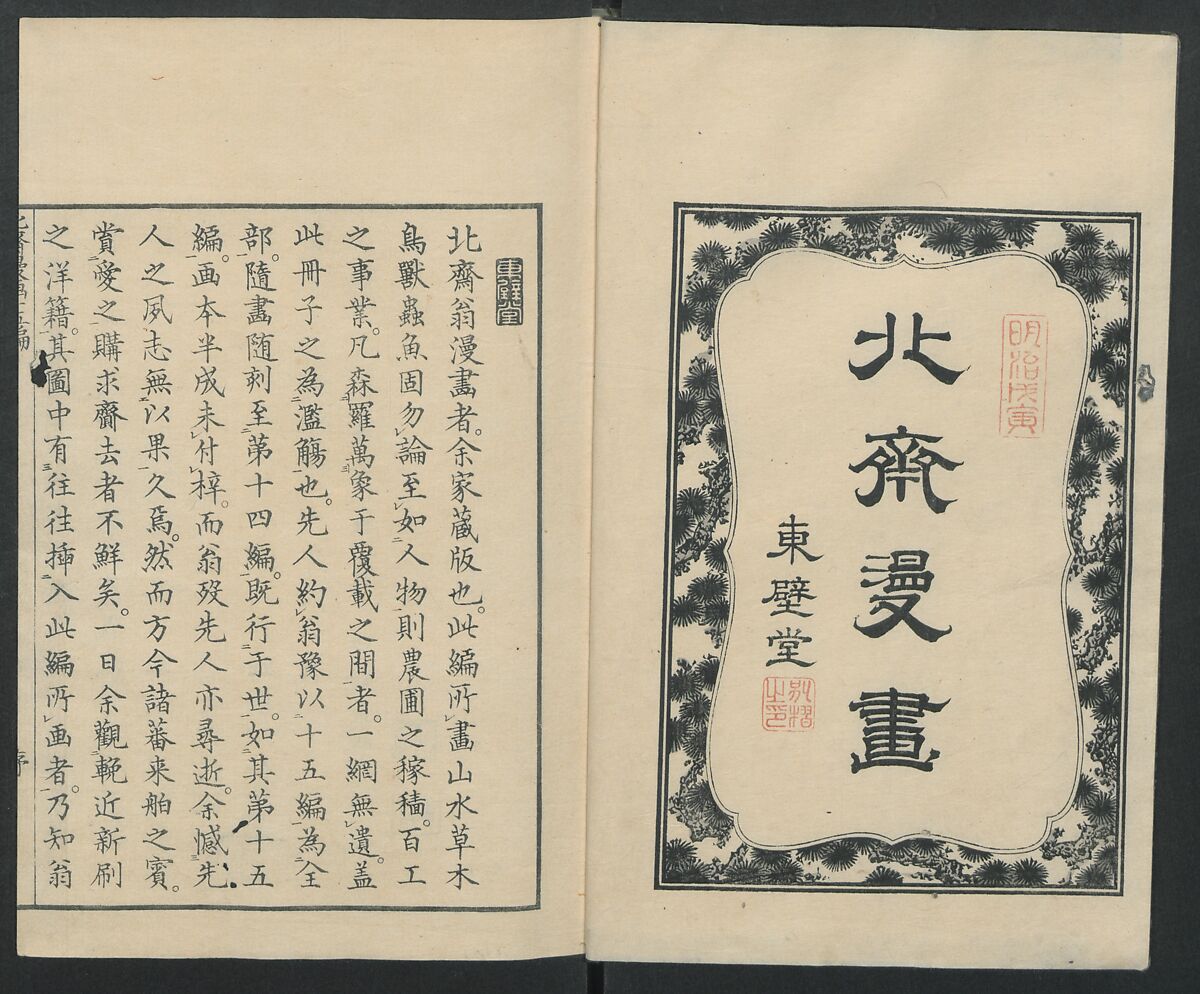 明治戊寅
北齋漫畫
東壁堂
東壁堂
北齋翁漫畫者。余家蔵版也。此編所畫山水草木
鳥獸蟲魚固勿論至如人物則農圃之稼穡。百工
之事業。凡森羅萬象于覆載之間者。一網無遺。盖
此冊子之為濫觴也。先人約翁豫以十五編為全
部。隨畵随刻至第十四編。既行于世。如其第十五
編。画本半成未付梓。而翁歿先人亦尋逝。余憾先
人之夙志無以果久焉。然而方今諸蕃来舶之賓。
賞愛之購求齎去者不鮮矣。一日余觀輓近新刷
之洋籍。其圖中有往往挿入此編所画者。乃知翁
序